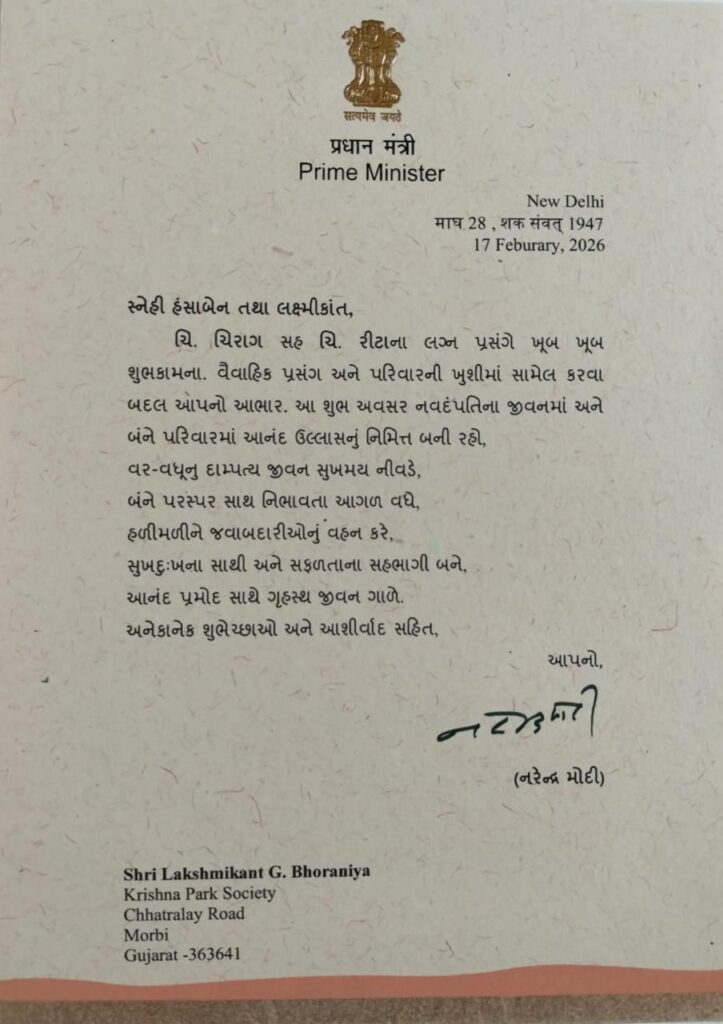 सत्यमेव जयते
प्रधान मंत्री
Prime Minister
New Delhi
माघ 28 , शक संवत् 1947
17 Feburary, 2026
સ્નેહી હંસાબેન તથા લક્ષ્મીકાંત,
ચિ. ચિરાગ સહ ચિ. રીટાના લગ્ન પ્રસંગે ખૂબ ખૂબ
શુભકામના. વૈવાહિક પ્રસંગ અને પરિવારની ખુશીમાં સામેલ કરવા
બદલ આપનો આભાર. આ શુભ અવસર નવદંપતિના જીવનમાં અને
બંને પરિવારમાં આનંદ ઉલ્લાસનું નિમિત્ત બની રહો,
વર-વધૂનુ દામ્પત્ય જીવન સુખમય નીવડે,
બંને પરસ્પર સાથ નિભાવતા આગળ વધે,
હળીમળીને જવાબદારીઓનું વહન કરે,
સુખદુઃખના સાથી અને સફળતાના સહભાગી બને,
આનંદ પ્રમોદ સાથે ગૃહસ્થ જીવન ગાળે.
અનેકાનેક શુભેચ્છાઓ અને આશીર્વાદ સહિત,
આપનો,
(નરેન્દ્ર મોદી)
Shri Lakshmikant G. Bhoraniya
Krishna Park Society
Chhatralay Road
Morbi
Gujarat -363641